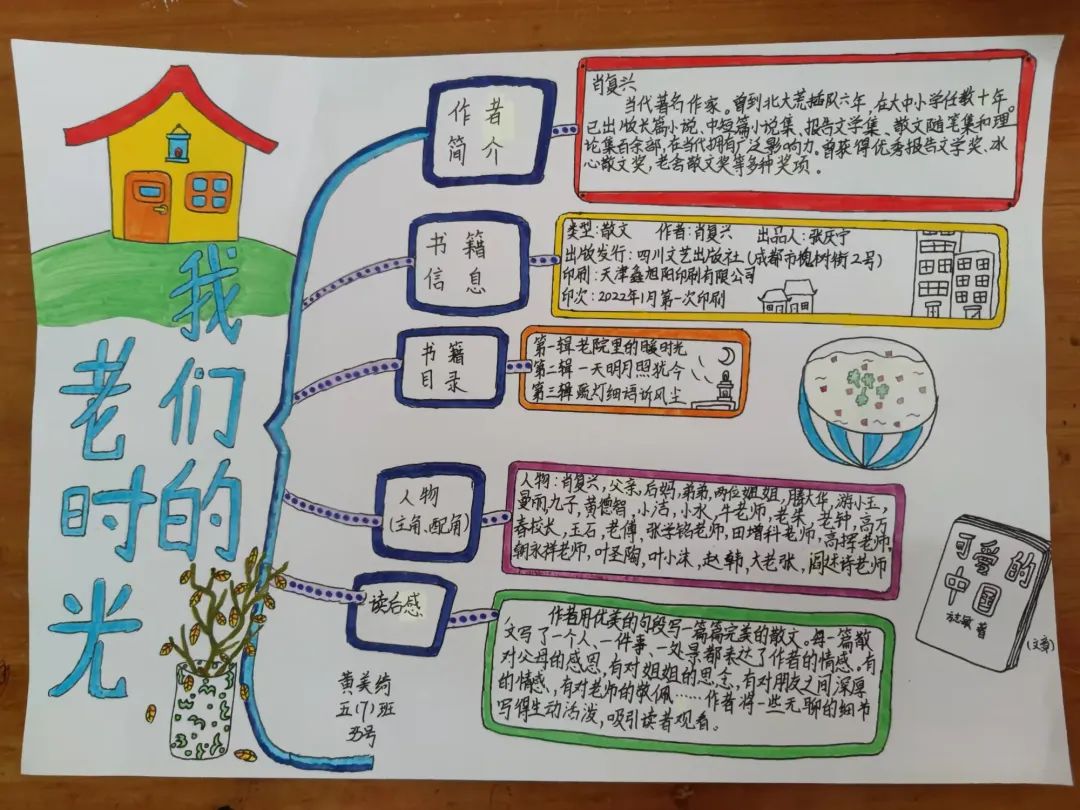 我们的
老时光
作者
简介
肖复兴
当代著名作家。曾到北大荒插队六年,在大中小学任教十年。
已出版长篇小说、中短篇小说集、报告文学集、散文随笔集和理
论集百余部,在当代拥有广泛影响力。曾获得优秀报告文学奖、冰
心散文奖,老舍散文奖等多种奖项。
书籍
信息
类型:散文 作者:肖复兴 出品人:张庆宁
出版发行:四川文艺出版社(成都市槐树街2号)
印刷:天津鑫旭阳印刷有限公司
印次:2022年1月第一次印刷
书籍
目录
第一辑老院里的暖时光
第二辑一天明月照犹今
第三辑疏灯细语诉风尘
人物
(主角、配角)
人物:肖复兴,父亲,后妈,弟弟,两位姐姐,滕大华,游小玉,
曼雨,九子,黄德智,小洁,小水,牛老师,老朱,老钟,高万
春校长,王石,老傅,张学铭老师,田增科老师,高挥老师,
朝永祥老师,叶圣陶,叶小沫,赵韩,大老张,阎述诗老师
读后感
作者用优美的句段写一篇篇完美的散文。每一篇散
文写了一个人、一件事、一处景都表达了作者的情感。有
对父母的感恩,有对姐姐的思念,有对朋友之间深厚
的情感,有对老师的敬佩……作者将一些无聊的细节
写得生动活泼,吸引读者观看。
黄美绮
五(7)班
35号
可爱的
中国
著
(文章)